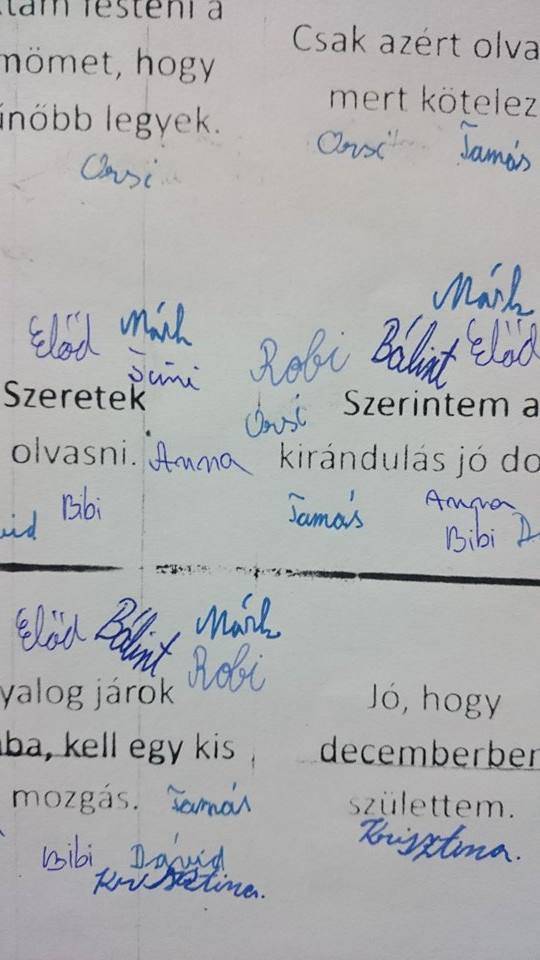 festeni a
mömet, hogy
nőbb legyek.
Orsi
Csak azért olva
mert kötelez
Orsi Tamás
Előd Márk
Szeretek
olvasni. Anna
Bibi
vid
Márk
Robi Bálint Előd
Orsi Szerintem a
kirándulás jó do
Tamás Anna
Bibi D
Előd Bálint Márk
Robi
yalog járok
ba, kell egy kis
mozgás. Tamás
Bibi Dávid
Krisztina.
Jó, hogy
decemberben
születtem.
Krisztina.